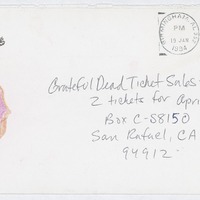 BIRMINGHAM, AL
PM
13 JAN
1994
Grateful Dead Ticket Sales
2 tickets for Apri
Box C-S8150
San Rafael, CA
94912